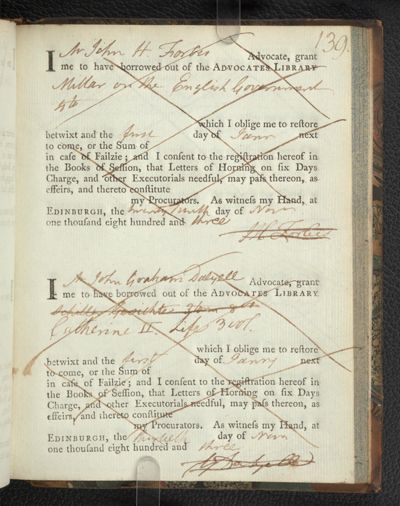 139.
I Mr John H Forbes Advocate, grant
me to have borrowed out of the ADVOCATES LIBRARY
Millar on the English Government
4to
which I oblige me to reſtore
betwixt and the first day of Janry next
to come, or the Sum of
in caſe of Failzie; and I conſent to the regiſtration hereof in
the Books of Seſſion, that Letters of Horning on ſix Days
Charge, and other Executorials needful, may paſs thereon, as
effeirs, and thereto conſtitute
my Procurators. As witneſs my Hand, at
EDINBURGH, the day of Novr
one thouſand eight hundred and three
J H Forbes
I John Graham Dalyell Advocate, grant
me to have borrowed out of the ADVOCATES LIBRARY
Catherine II Life 3 vol.
which I oblige me to reſtore
betwixt and the first day of Janry next
to come, or the Sum of
in caſe of Failzie; and I conſent to the regiſtration hereof in
the Books of Seſſion, that Letters of Horning on ſix Days
Charge, and other Executorials needful, may paſs thereon, as
effeirs, and thereto conſtitute
my Procurators. As witneſs my Hand, at
EDINBURGH, the day of Novr
one thouſand eight hundred and three
Dalyell